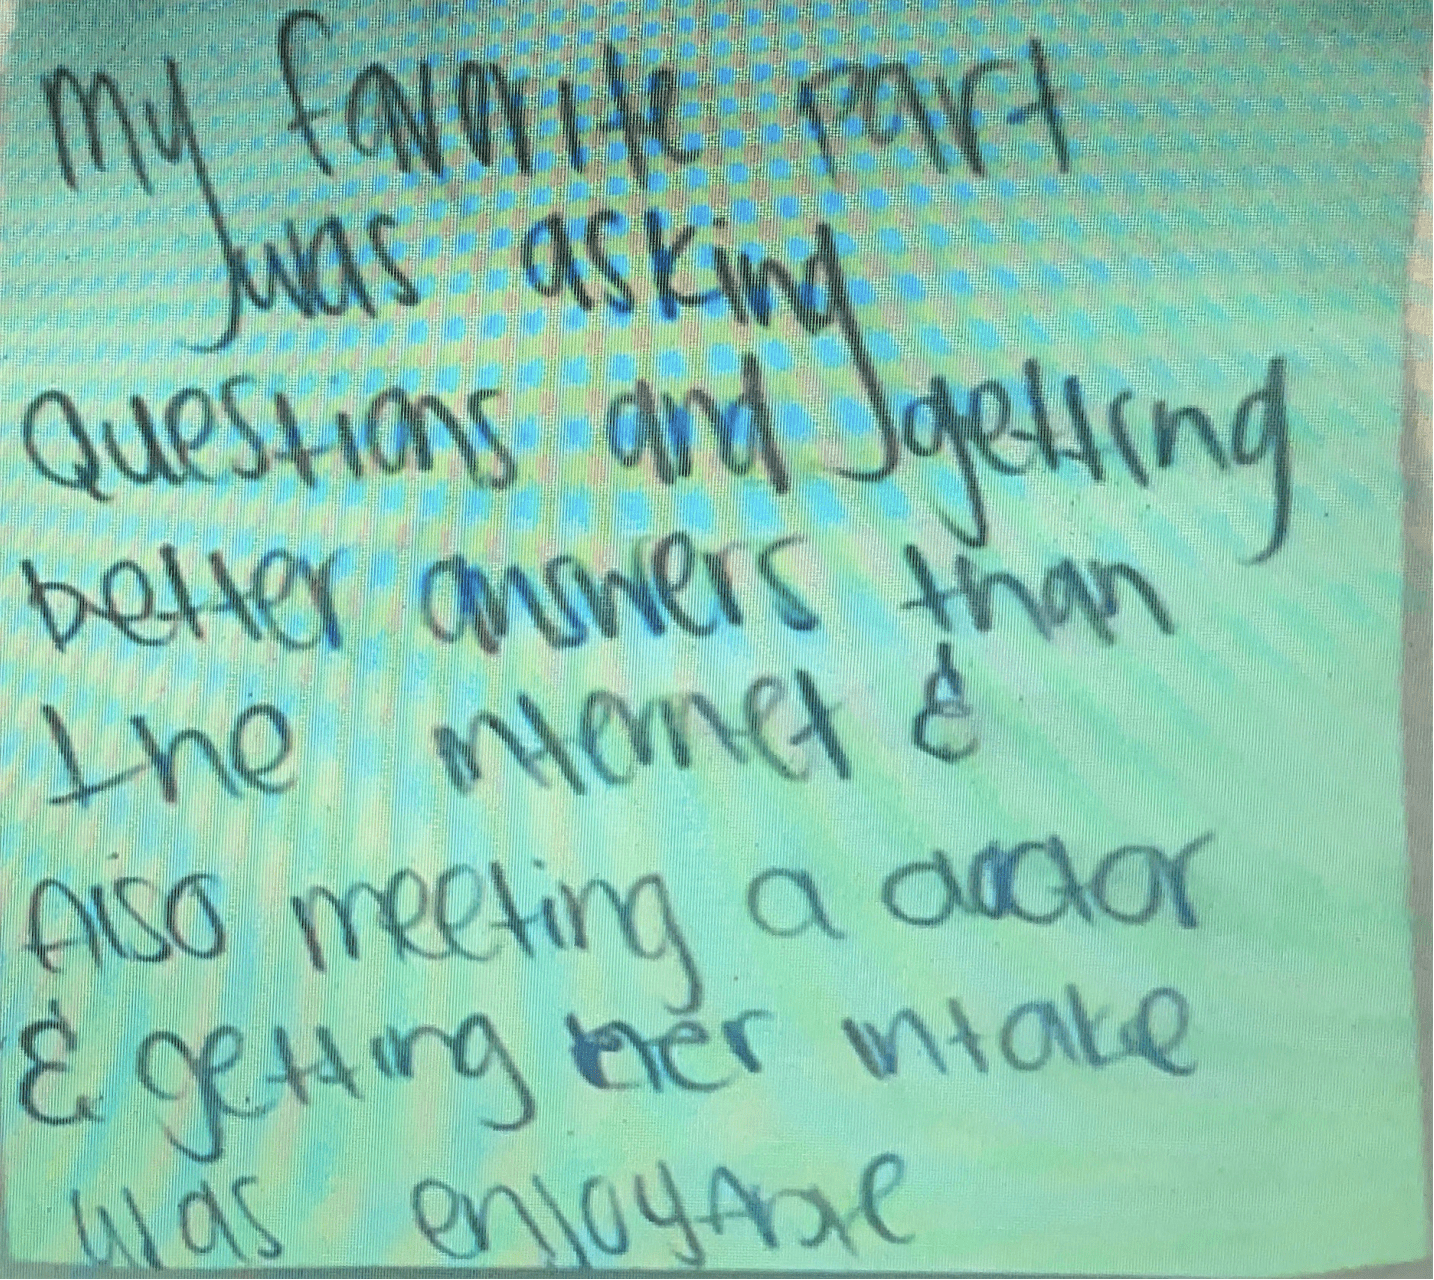 My favorite part
was asking
Questions and getting
better answers than
the internet &
Also meeting a doctor
& getting her intake
was enjoyable